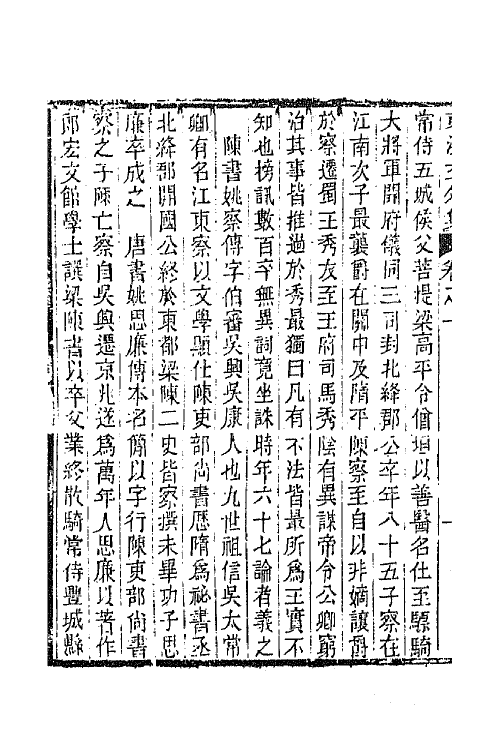 常侍五城侯父菩提梁高平令僧垣以善醫名仕至驃騎
大將軍開府儀同三司封北絳郡公卒年八十五子察在
江南次子最襲爵在關中及隋平陳察至自以非嫡讓爵
於察遷蜀王秀友至王府司馬秀陰有異謀帝令公卿窮
治其事皆推過於秀最獨曰凡有不法皆最所爲王實不
知也搒訊數百卒無異詞竟坐誅時年六十七論者義之
陳書姚察傳字伯審吳興吳康人也九世祖信吳太常
卿有名江東察以文學顯仕陳吏部尚書歷隋爲祕書丞
北絳郡開國公終於東都梁陳二史皆察撰未畢功子思
廉卒成之　唐書姚思廉傳本名簡以字行陳吏部尚書
察之子陳亡察自吳興遷京兆遂爲萬年人思廉以著作
郎宏文館學士譔梁陳書以卒父業終散騎常侍豐城縣